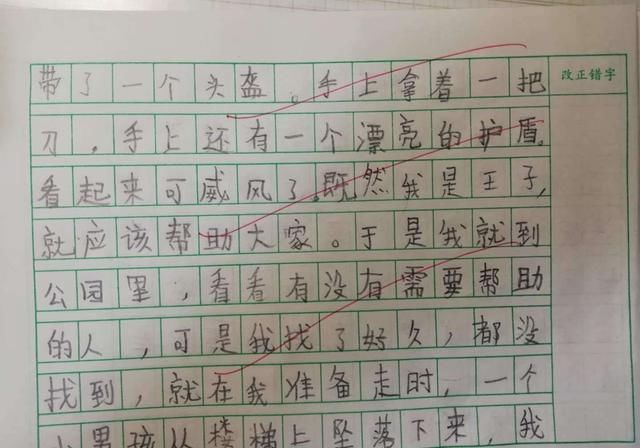 带了一个头盔。手上拿着一把
改正错字
刀，手上还有一个漂亮的护盾，
看起来可威风了。既然我是王子，
就应该帮助大家。于是我就到
公园里，看看有没有需要帮助
的人，可是我找了好久，都没
找到，就在我准备走时，一个
小男孩从楼梯上坠落下来，我